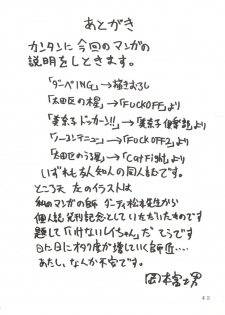 あとがき
カンタンに今回のマンガの
説明をしときます。
「ダーペING」→描きおろし
「太田区の星」→「FUCK OFF」より
「美奈子ドッカーン!!」→「美奈子倶楽部」より
「ノーコンテニュー」→「FUCK OFF2」より
「太田区のうる星」→「Cat Fight」より
いずれも友人知人の同人誌です。
ところで左のイラストは
私のマンガの師 ダーティ松本先生から
個人誌発刊記念としていただいたものです
題して「いけないレイちゃん」だそうです
日に日にオタク度が増していく師匠……
あたし、なんか不安です。
42